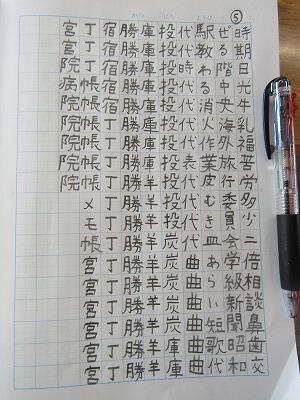 ⑤
時期日光牛乳福苦労多少二倍相談鼻歯交
ぜる階中央海外旅行委員会学級新聞昭和
駅教わる消火作業皮むき皿あらい短歌代
代代時代代代代表代代代曲曲曲曲曲曲
投投投投投投投投投投投炭炭炭炭炭庫庫
庫庫庫庫庫庫庫庫羊羊羊羊羊羊羊羊羊羊
勝勝勝勝勝勝勝勝勝勝勝勝勝勝勝勝勝勝
宿宿宿宿宿宿丁丁丁丁丁丁丁丁丁丁丁丁
丁丁丁帳帳帳帳帳帳メモ帳宮宮宮宮宮宮
宮宮院病院院院院院